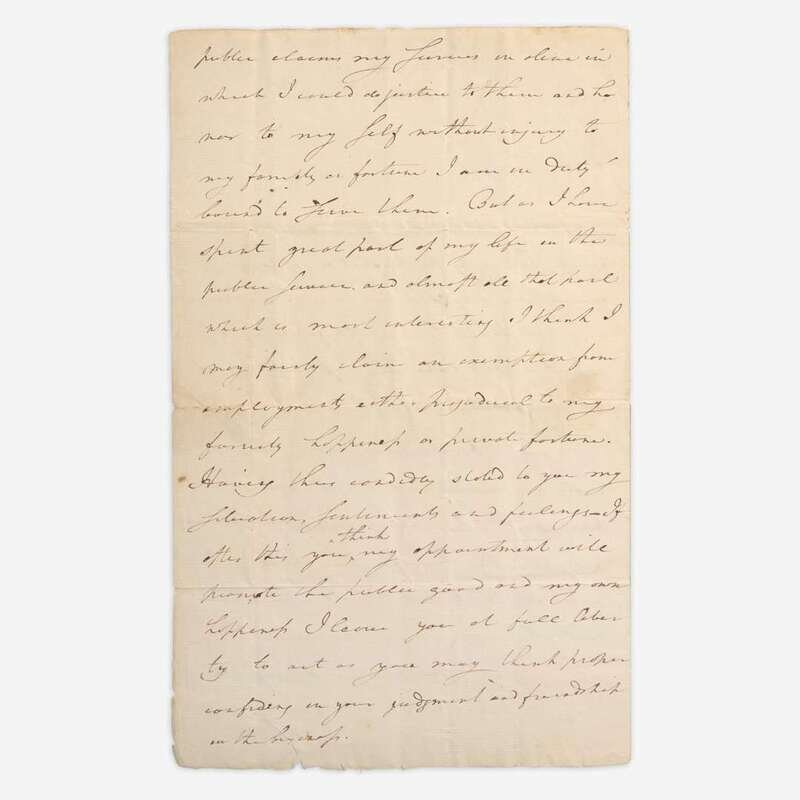 public claims my Services in a line in
which I could do justice to them and ho
nor to my Self without injury to
my family or fortune I am in duty
bound to Serve them. But as I have
spent great part of my life in the
public Service. and almost all that part
which is most interesting I think I
may fairly claim an exemption from
employments either prejudicial to my
family happiness or private fortune.
Having thus candidly stated to you my
Situation, Sentiments and feelings—If
after this you think my appointment will
promote the public good and my own
happiness I leave you at full liber
ty to act as you may think proper
confiding in your judgment and friendship
in the business.